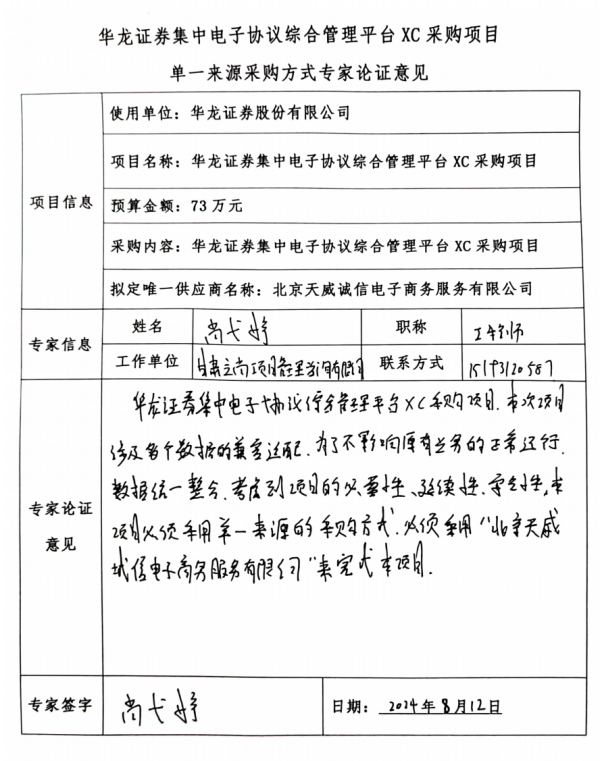 华龙证券集中电子协议综合管理平台 XC 采购项目
单一来源采购方式专家论证意见
项目信息
使用单位：华龙证券股份有限公司
项目名称：华龙证券集中电子协议综合管理平台 XC 采购项目
预算金额：73 万元
采购内容：华龙证券集中电子协议综合管理平台 XC 采购项目
拟定唯一供应商名称：北京天威诚信电子商务服务有限公司
专家信息
姓名 尚弋婷 职称 工程师
工作单位 甘肃立尚项目管理咨询有限公司 联系方式 15193120587
专家论证
意见
华龙证券集中电子协议综合管理平台XC采购项目.本次项目
涉及多个数据的兼容适配.为了不影响原有业务的正常运行.
数据统一整合.考虑到项目的必要性、延续性、安全性,本
项目必须采用单一来源的采购方式.必须采用“北京天威
诚信电子商务服务有限公司”来完成本项目.
专家签字 尚弋婷 日期：2024年8月12日